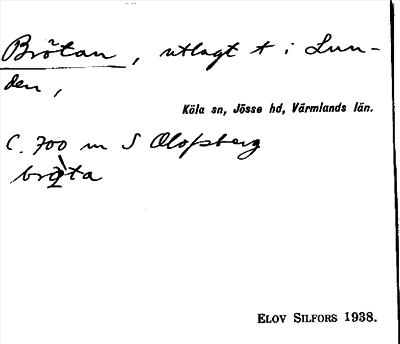 Brötan, utlagt t i Lun-
den,
Köla sn, Jösse hd, Värmlands län.
C. 700 m S Olofsberg
brø̀ta
ELOV SILFORS 1938.